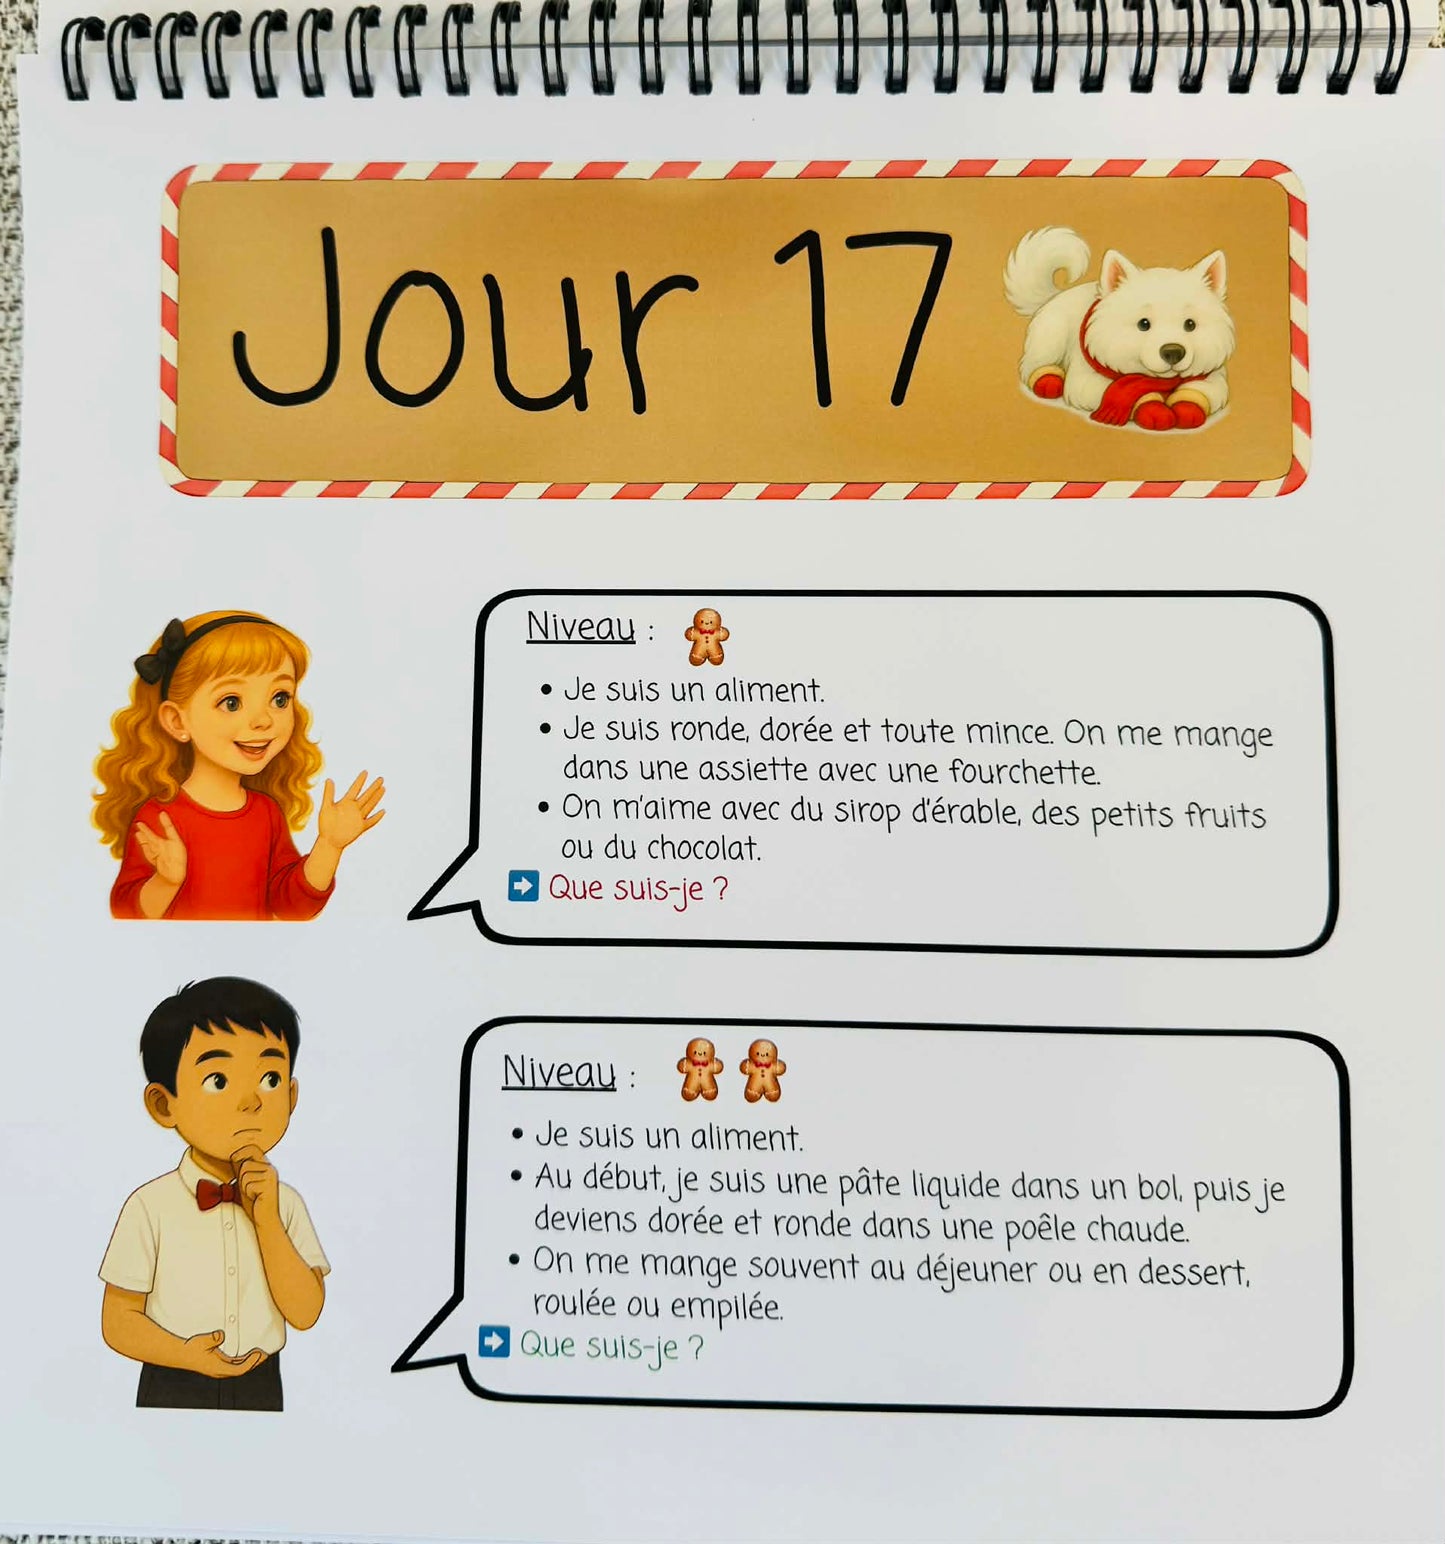 Jour 17
Niveau :
• Je suis un aliment.
• Je suis ronde, dorée et toute mince. On me mange
dans une assiette avec une fourchette.
• On m'aime avec du sirop d'érable, des petits fruits
ou du chocolat.
Que suis-je ?
Niveau :
• Je suis un aliment.
• Au début, je suis une pâte liquide dans un bol, puis je
deviens dorée et ronde dans une poêle chaude.
• On me mange souvent au déjeuner ou en dessert,
roulée ou empilée.
Que suis-je ?